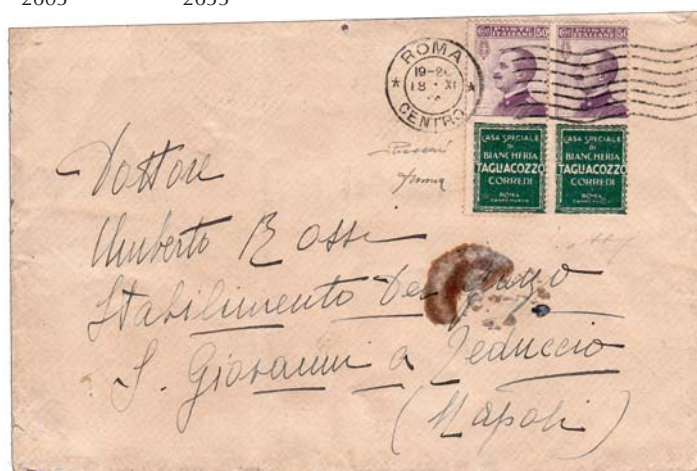 2603 2653
POSTE ITALIANE 50
POSTE ITALIANE 50
ROMA
19-20
18 XI
CENTRO
CASA SPECIALE
DI
BIANCHERIA
TAGLIACOZZO
CORREDI
ROMA
CASA SPECIALE
DI
BIANCHERIA
TAGLIACOZZO
CORREDI
ROMA
Dottore
Umberto Rossi
Stabilimento Del
S. Giovanni a Teduccio
(Napoli)